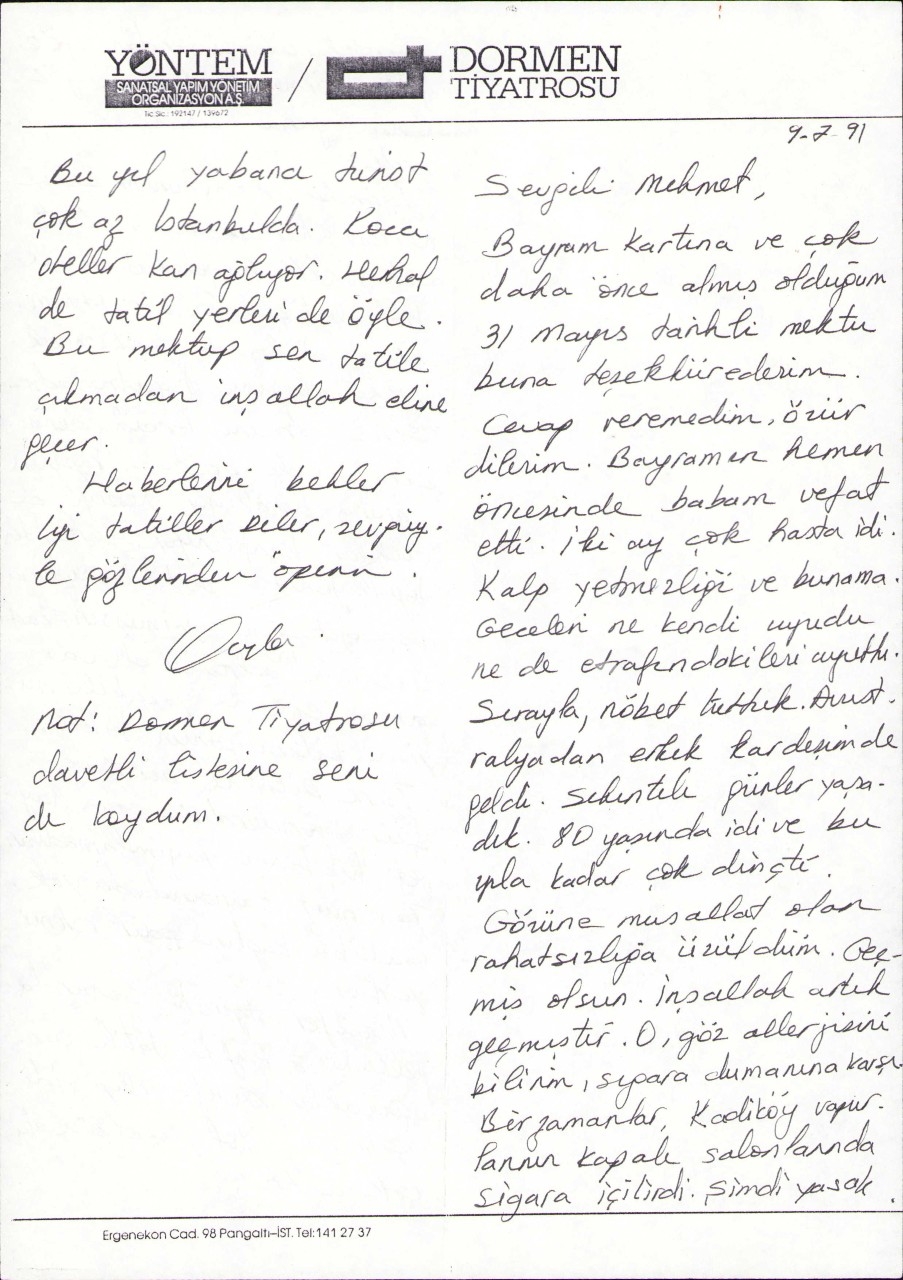 YÖNTEM
SANATSAL YAPIM YÖNETİM
ORGANİZASYON A.Ş.
Tic Sic: 192147 / 139672
/
DORMEN
TİYATROSU
9-7-91
Sevgili Mehmet,
Bayram kartına ve çok
daha önce almış olduğum
31 Mayıs tarihli mektu
buna teşekkür ederim.
Cevap veremedim, özür
dilerim. Bayramın hemen
öncesinde babam vefat
etti. İki ay çok hasta idi.
Kalp yetmezliği ve bunama.
Geceleri ne kendi uyudu
ne de etrafındakileri uyuttu.
Sırayla, nöbet tuttuk. Avust.
ralyadan erkek kardeşimde
geldi. Sıkıntılı günler yaşa-
dık. 80 yaşında idi ve bu
yıla kadar çok dinçti.
Gözüne musallat olan
rahatsızlığa üzüldüm. Geç-
miş olsun. İnşallah artık
geçmiştir. O, göz allerjisini
bilirim, sıgara dumanına karşı.
Bir zamanlar, Kadıköy vapur.
larının kapalı salonlarında
sigara içilirdi. Şimdi yasak.
Bu yıl yabancı turist
çok az İstanbulda. Koca
oteller kan ağlıyor. Herhal
de tatil yerleri de öyle.
Bu mektup sen tatile
çıkmadan inşallah eline
geçer.
Haberlerini bekler
iyi tatiller diler, sevgiy.
le gözlerinden öperim.
Not: Dormen Tiyatrosu
davetli listesine seni
de koydum.
Ergenekon Cad. 98 Pangaltı-İST. Tel: 141 27 37